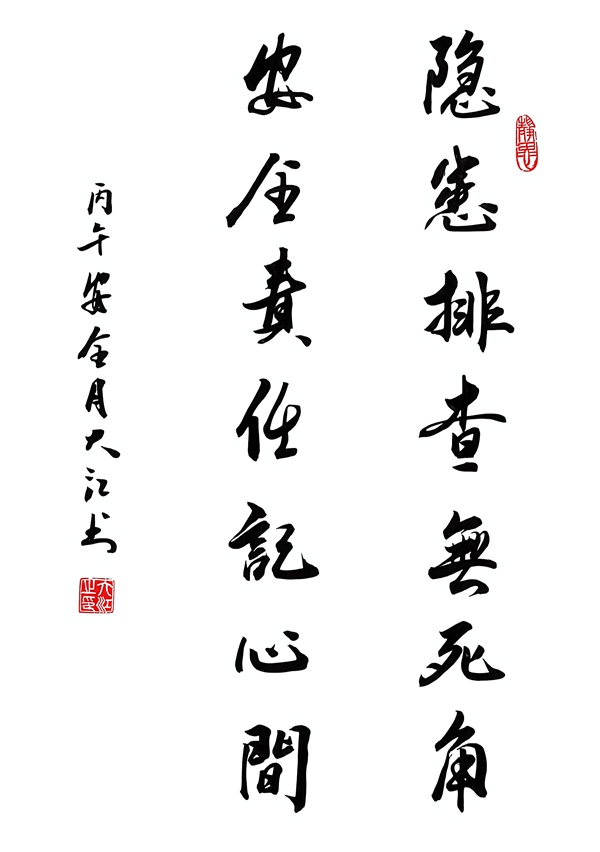 隐患排查無死角
安全責任記心間
丙午安全月大江书
大江之印